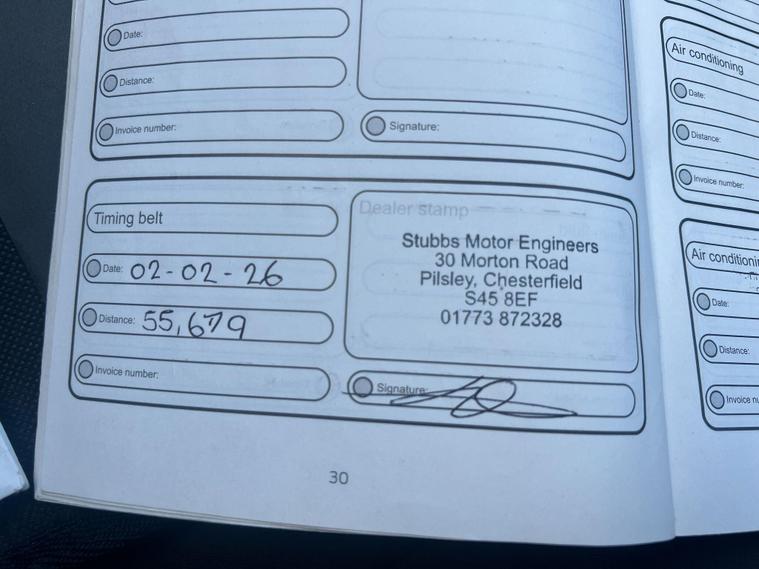 Date:
Distance:
Invoice number:
Signature:
Timing belt
Date: 02-02-26
Distance: 55,679
Invoice number:
Dealer stamp
Stubbs Motor Engineers
30 Morton Road
Pilsley, Chesterfield
S45 8EF
01773 872328
Signature:
30
Air conditioning
Date:
Distance:
Invoice number:
Air conditioni
Date:
Distance:
Invoice nu